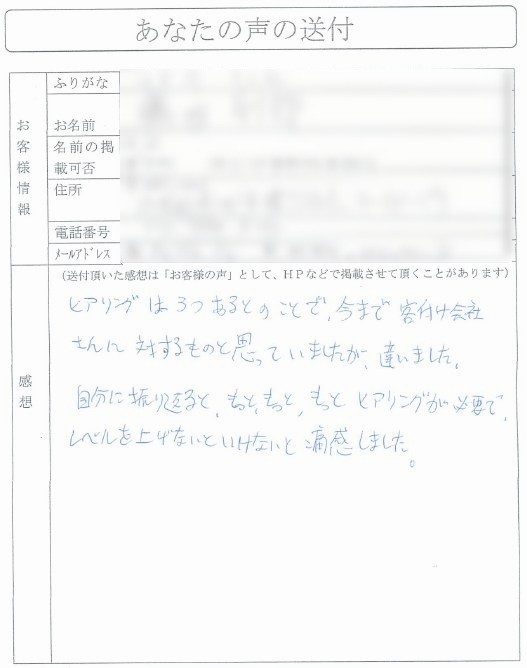 あなたの声の送付
ふりがな
お客様情報
お名前
名前の掲
載可否
住所
電話番号
メールアドレス
感想
(送付頂いた感想は「お客様の声」として、HPなどで掲載させて頂くことがあります)
ヒアリングは3つあるとのことで、今まで客付け会社
さんに対するものと思っていましたが、違いました。
自分に振り返ると、もっと、もっと、もっとヒアリングが必要で、
レベルを上げないといけないと痛感しました。